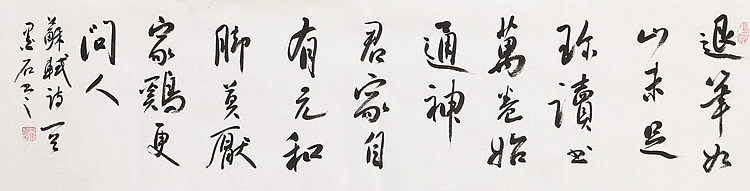 退筆如
山未足
珎讀書
萬卷始
通神
君家自
有元和
脚莫厭
家鷄更
問人
蘇軾詩一首
墨石